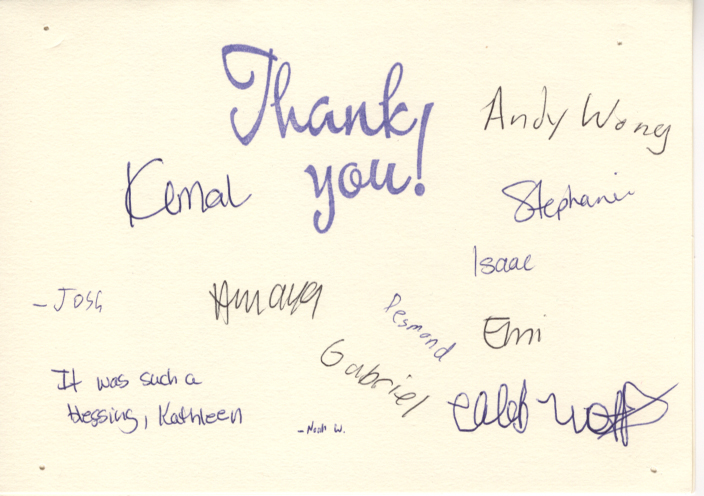 Thank
you!
Andy Wong
Kemal
Stephanie
Isaac
- Josh
Amaya
Desmond
Emi
Gabriel
It was such a
blessing, Kathleen
Caleb
- Noah W.